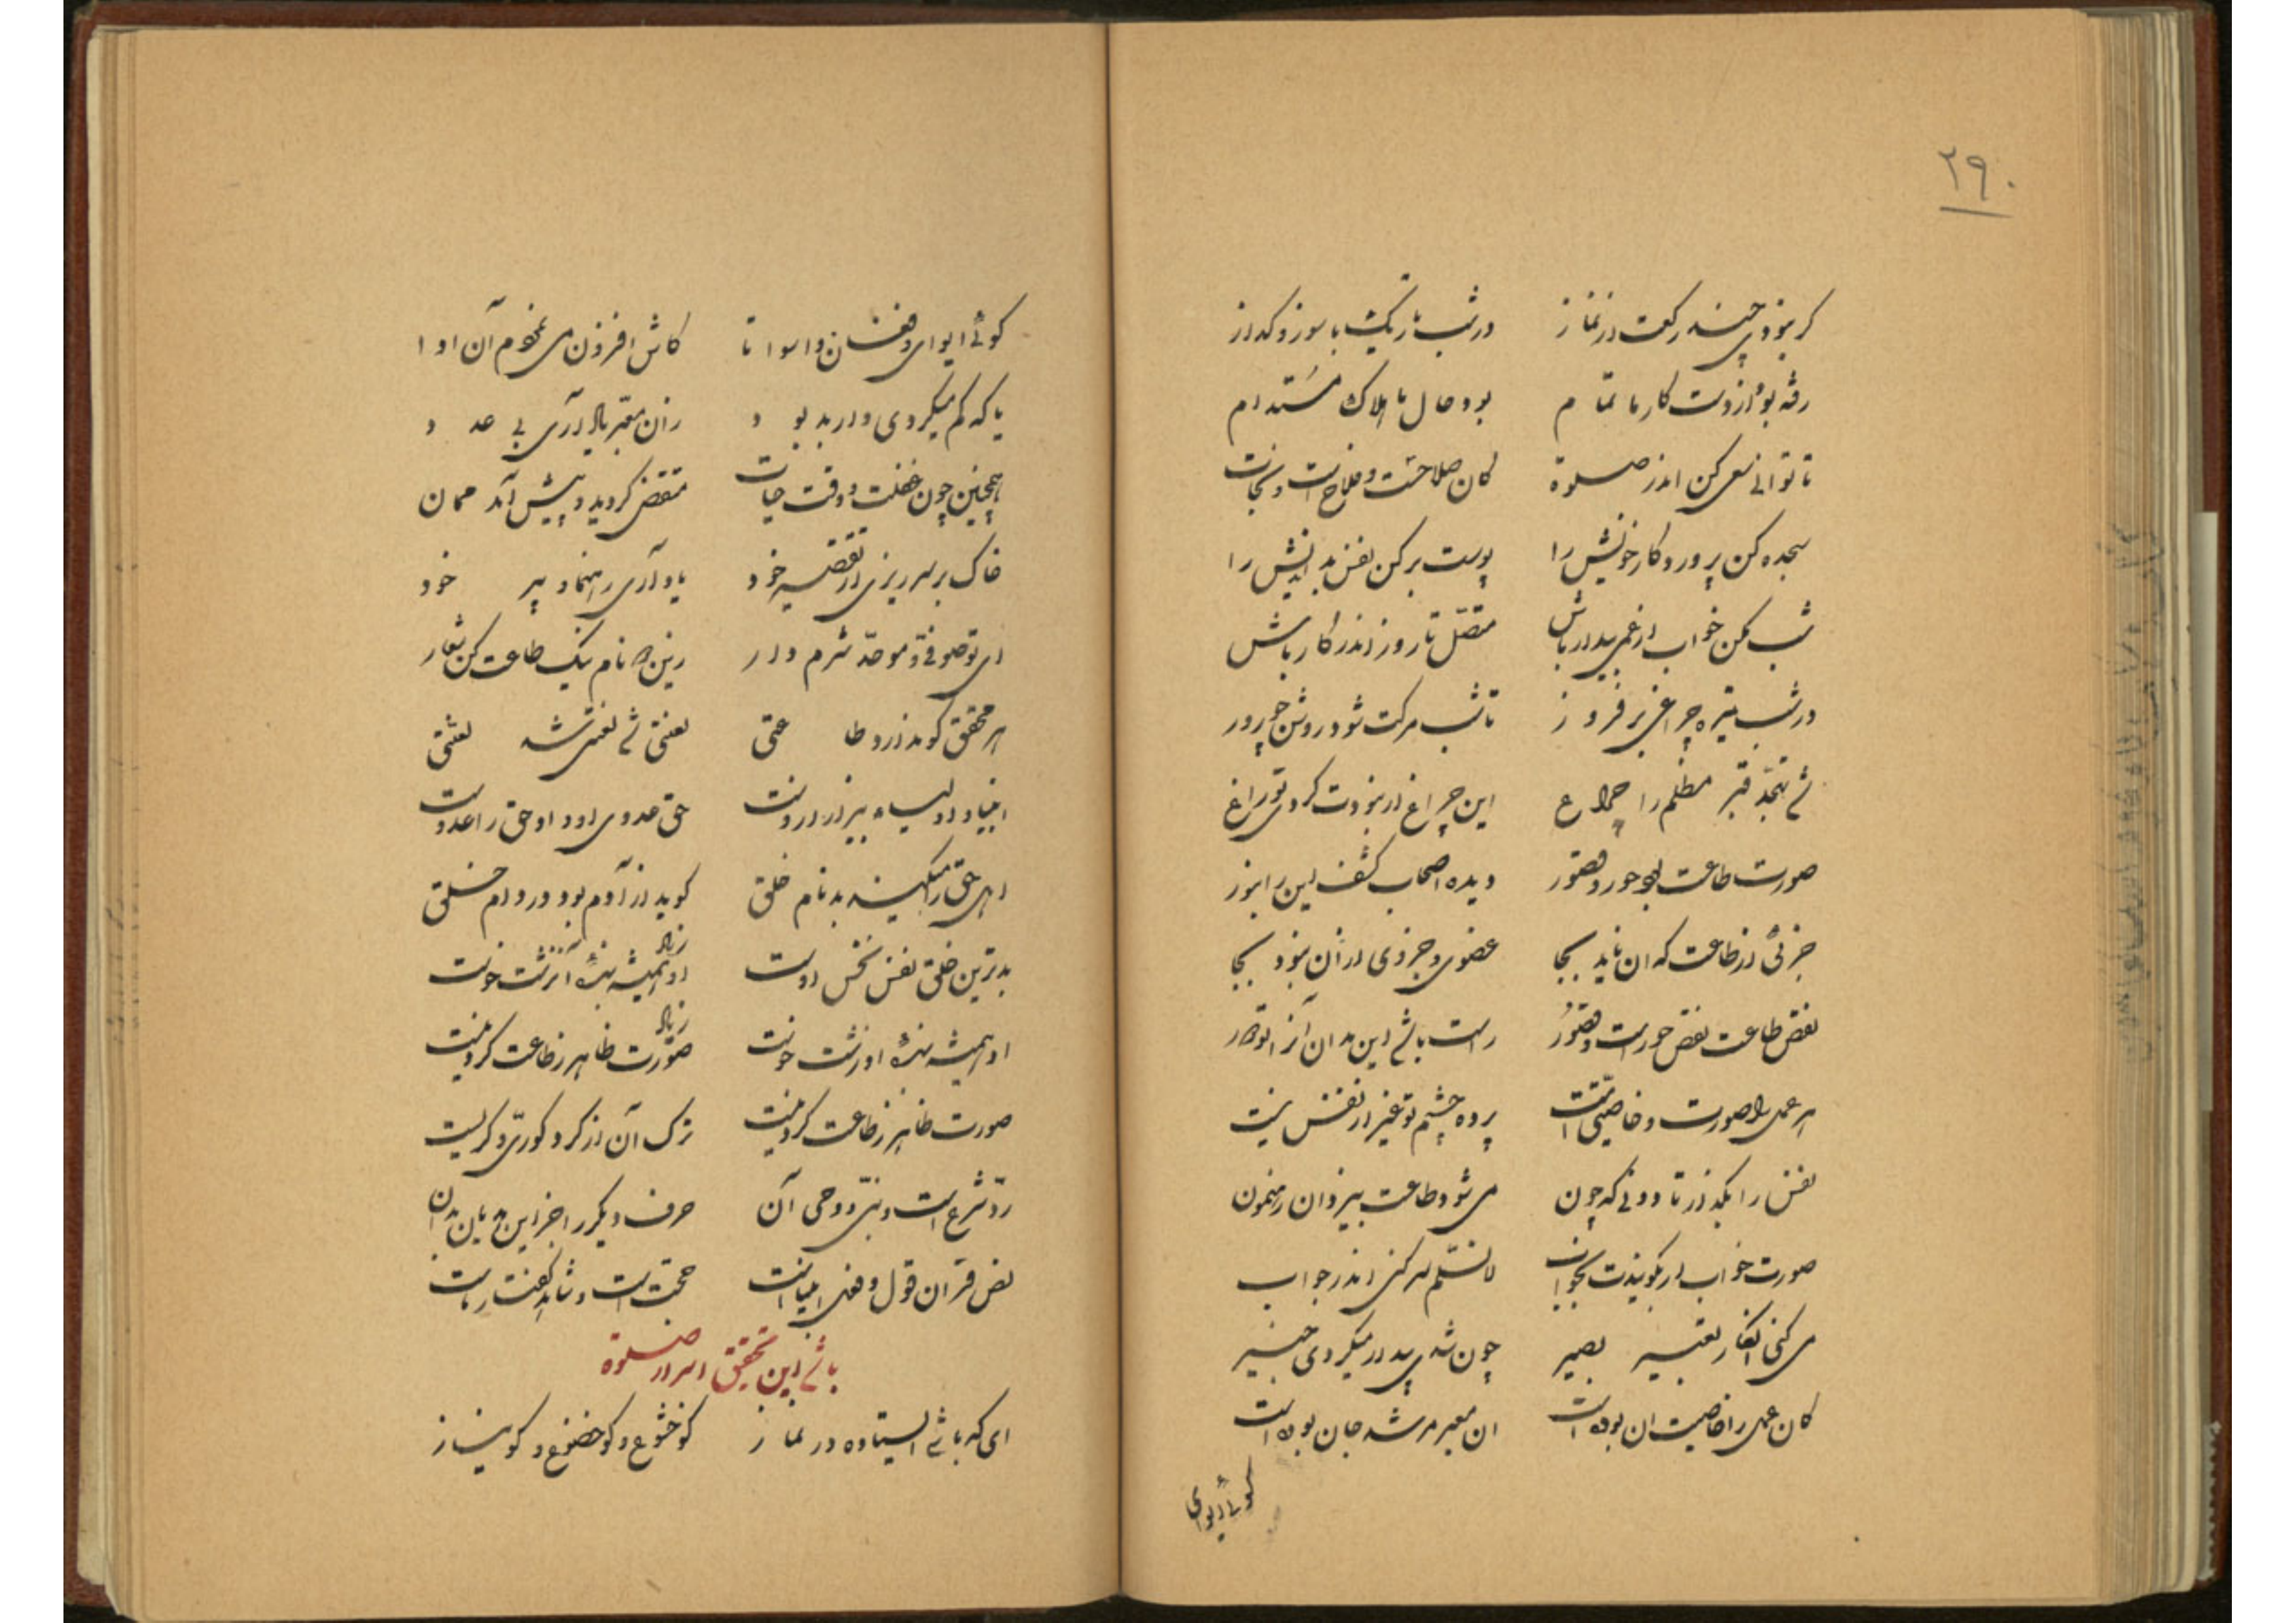 ۲۹۰
گر نبودی چند رکعت در نماز در شب تاریک با سوز و گداز
رفته بود از دست کار ما تمام بود حال ما هلاک مستدام
تا توانی سعی کن اندر صلوة کان صلاحست و فلاح است و نجات
سجده کن پروردگار خویش را پوست برکن نفس بداندیش را
شب مکن خواب ار غمی بیدار باش متصّل تا روز اندر کار باش
در شب تیره چراغی برفروز تا شب مرکت شود روشن چو روز
شد تهجّد قبر مظلم را چراغ این چراغ ار نبودت کردی تو راغ
صورت طاعت بود حور و قصور دیده اصحاب کشف این را بنور
جزئی از طاعت که ان ناید بجا عضوی و جزوی از آن نبود بجا
نقص طاعت نقص حور است و قصور راست باشد این بدان آنرا تو
هر عمل را صورت و خاصیتی است پرده چشم تو غیر از نفس نیست
نفس را بگذار تا دونی که چون می شود طاعت بیزدان رهنمون
صورت خواب ار بگویندت بخواب لا نسلّم سر کنی اندر جواب
می کنی انکار تعبیر بصیر چون شدی بیدار میکردی خبیر
کان عمل را خاصیت ان بوده است ان معبر مرشد جان بوده است
گوئی ایوای
گوئی ایوای و فغان وا سواتا کاش افزون می نمودم آن ادا
یا که کم میکردی و ار بد بود زان معبّر یاد آری بی عدد
همچنین چون غفلت و وقت حیات منقضی کردید و پیش آمد ممات
خاک بر سر ریزی از تقصیر خود یاد آری رهنما و پیر خود
ای تو صوفی و موحدّ شرم دار زین نام نیک طاعت کن شعار
هر محقق کو بد از رد طاعتی لعنتی شد لعنتی شد لعنتی
انبیاء و اولیاء بیزار از وست حق عدوی او و او حق را عدوست
اهل حق را میکند بدنام خلق گوید از آدم بود در دام خلق
بدترین خلق نفس نحس اوست او همیشه بنده آن زشت خوست
او همیشه بنده او زشت خوست صورت ظاهر ز طاعت کرد نیست
صورت ظاهر ز طاعت کرد نیست ترک آن از کرد کوری و کریست
ردّ شرع است و نبی و وحی آن حرف دیگر را جز این هذیان بدان
نص قرآن قول و فعل انبیا است حجّت است و شاهد گفتار ماست
باشد این تحقیق اسرار صلوة
ای که باشی ایستاده در نماز کو خشوع و کو خضوع و کو نیاز